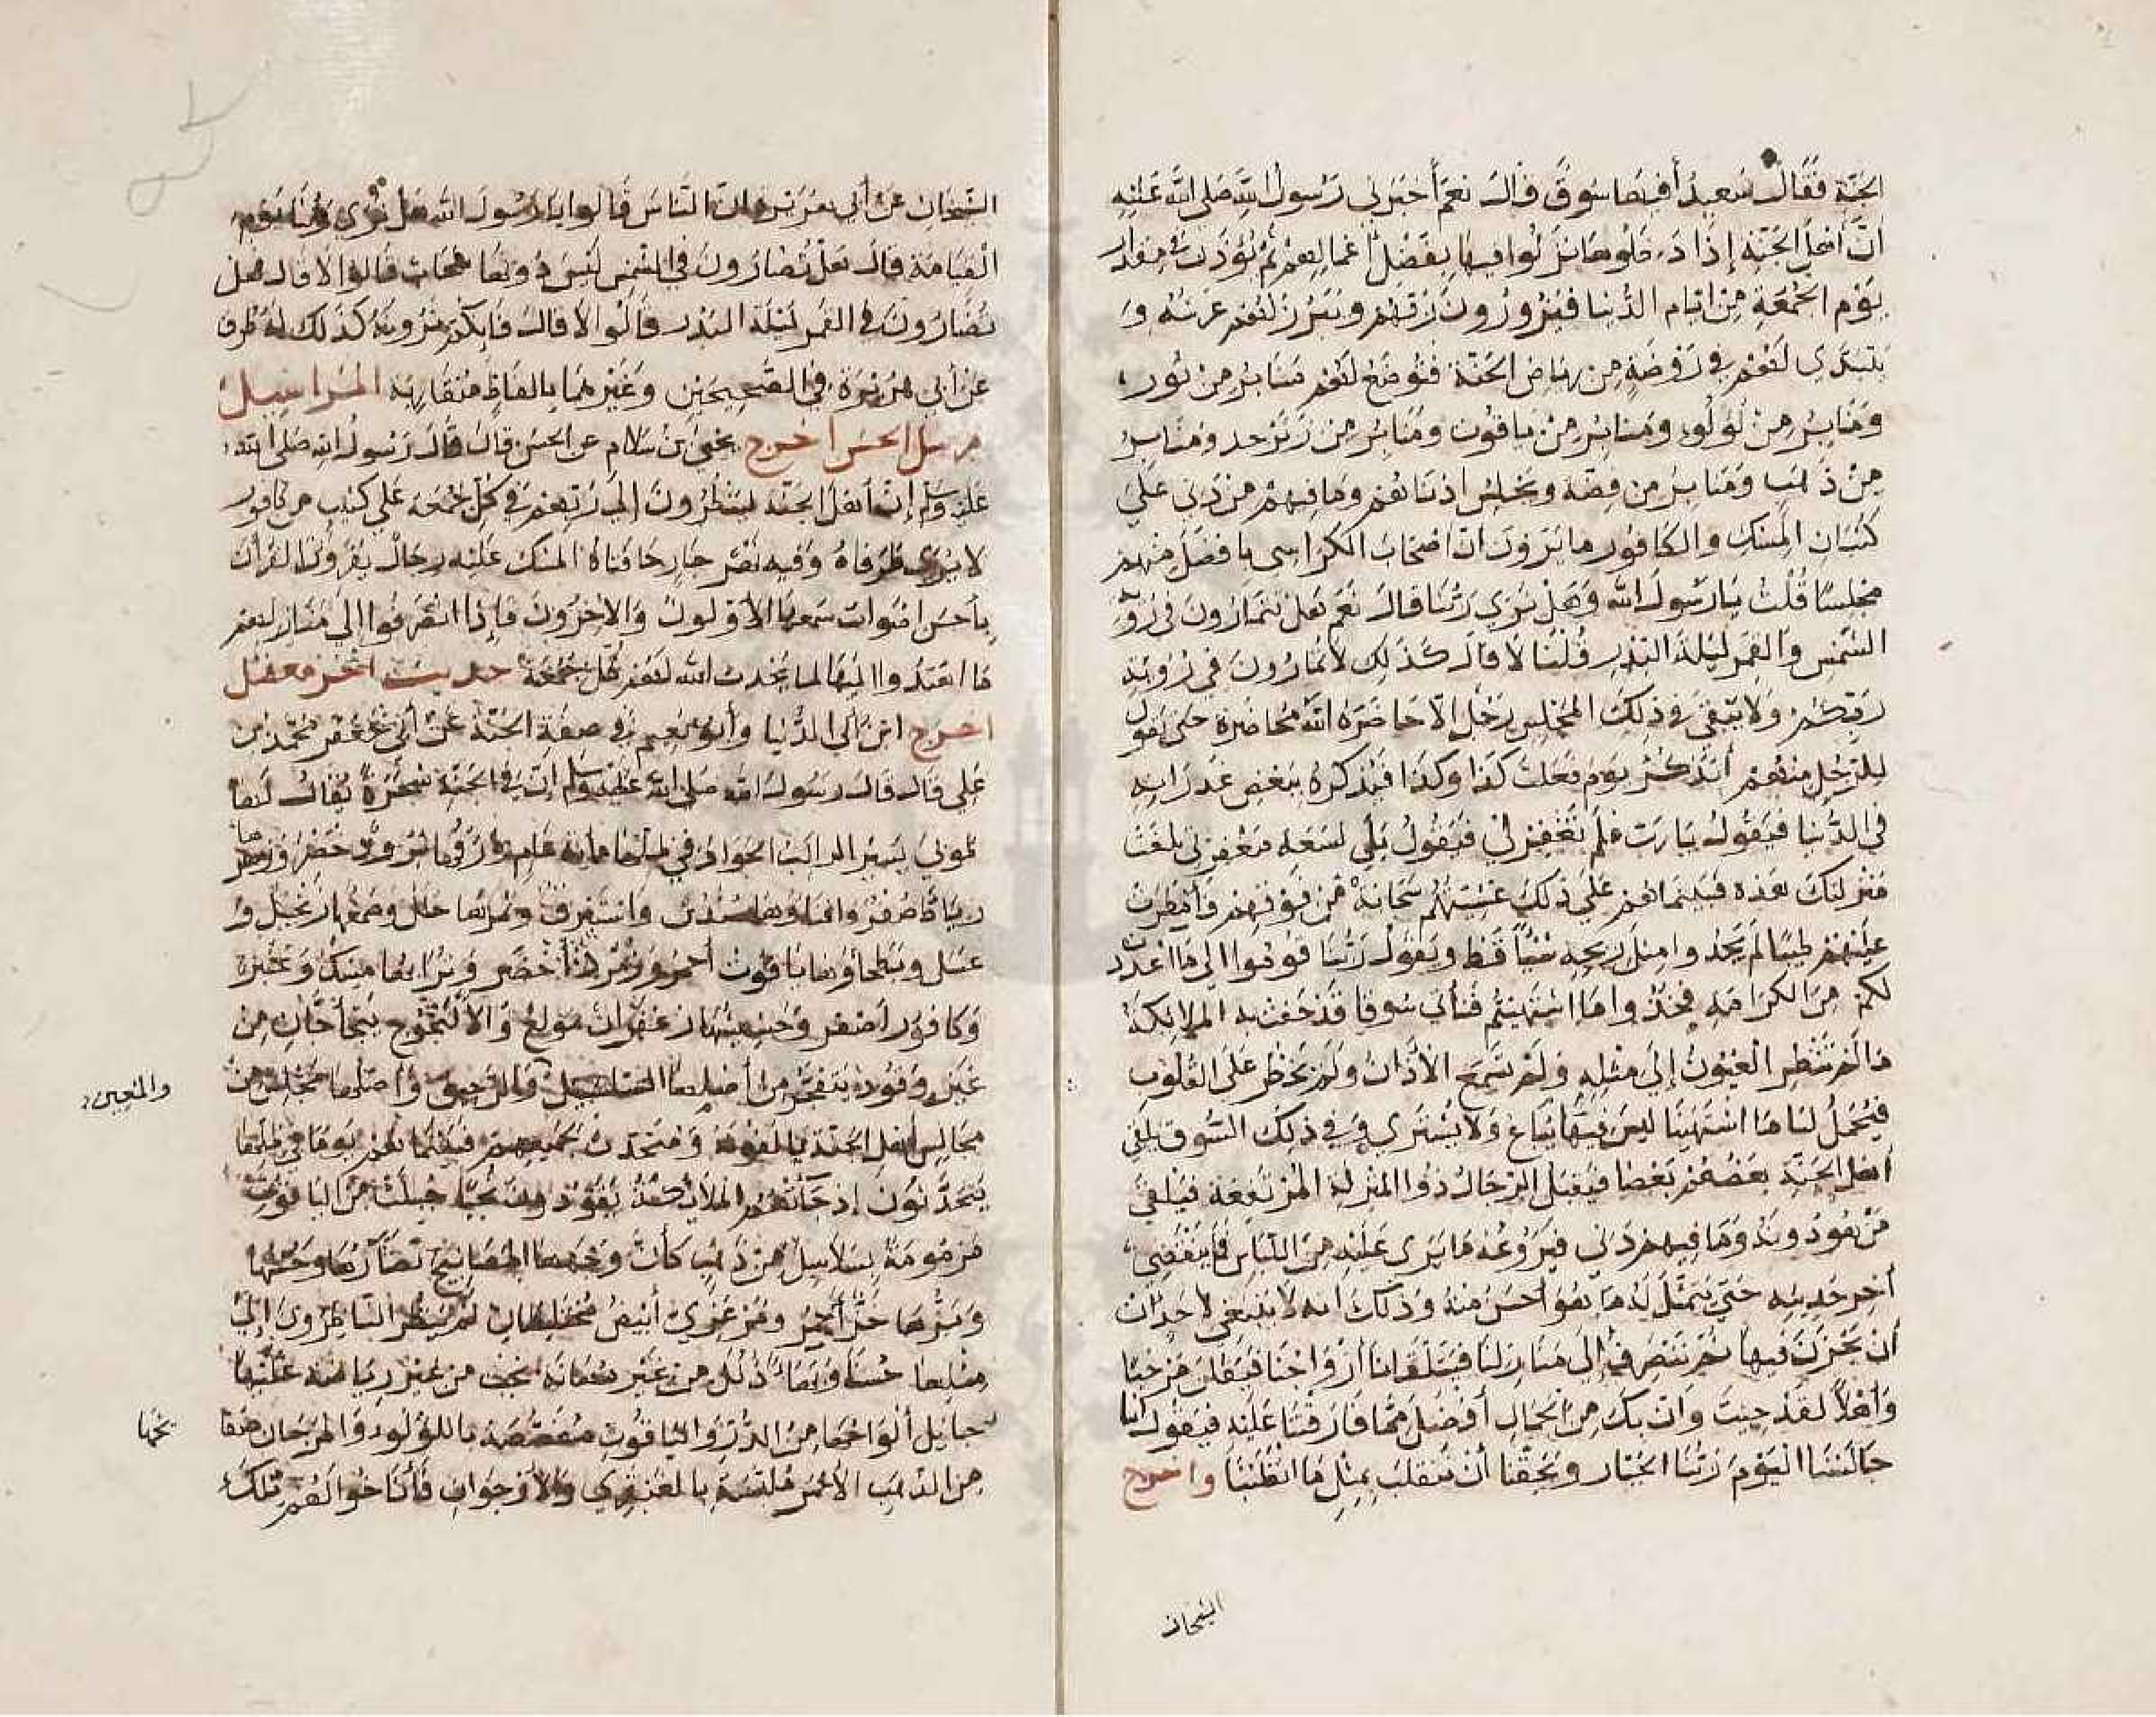 الجنة فقال سعيد أفيها سوق قال نعم أخبرني رسول الله صلى الله عليه
أن أهل الجنة إذا دخلوها نزلوا فيها بفضل أعمالهم ثم يؤذن في مقدار
يوم الجمعة من أيام الدنيا فيزورون ربهم ويبرز لهم عرشه و
يتبدى لهم في روضة من رياض الجنة فتوضع لهم منابر من نور
ومنابر من لؤلؤ ومنابر من ياقوت ومنابر من زبرجد ومنابر
من ذهب ومنابر من فضة ويجلس ادناهم وما فيهم من دني على
كثبان المسك والكافور ما يرون ان اصحاب الكراسي بافضل منهم
مجلسا قلت يا رسول الله وهل نرى ربنا قال نعم هل تتمارون في رؤية
الشمس والقمر ليلة البدر قلنا لا قال كذلك لا تمارون في رؤية
ربكم ولا يبقى في ذلك المجلس رجل إلا حاضره الله محاضرة حتى يقول
للرجل منهم أتذكر يوم فعلت كذا وكذا فيذكره ببعض غدراته
في الدنيا فيقول يا رب فلم تغفر لي فيقول بلى لسعة مغفرتي بلغت
منزلتك هذه فبينما هم على ذلك غشيتهم سحابة من فوقهم فأمطرت
عليهم طيبا لم يجدوا مثل ريحه شيئا قط ويقول ربنا قوموا إلى ما اعددت
لكم من الكرامة فخذوا ما اشتهيتم فنأتي سوقا قد حفت به الملائكة
ما لم تنظر العيون إلى مثله ولم تسمع الآذان ولم يخطر على القلوب
فيحمل لنا ما اشتهينا ليس فيها يباع ولا يشترى وفي ذلك السوق يلقى
أهل الجنة بعضهم بعضا فيقبل الرجال ذوا المنزلة المرتفعة فيلقى
من هو دونه وما فيهم دني فيروعه ما يرى عليه من اللباس فما ينقضي
آخر حديثه حتى يتمثل له ما هو أحسن منه وذلك انه لا ينبغي لأحد ان
أن يحزن فيها ثم ننصرف إلى منازلنا فتتلقانا أزواجنا فيقلن مرحبا
وأهلا لقد جيت وان بك من الجمال أفضل مما فارقتنا عليه فيقول انا
جالسنا اليوم ربنا الجبار ويحقنا أن ننقلب بمثل ما انقلبنا واخرج
الشيخان
الشيخان عن أبي هريرة ان الناس قالوا يا رسول الله هل نرى ربنا يوم
القيامة قال هل تضارون في الشمس ليس دونها سحاب قالوا لا قال فهل
تضارون في القمر ليلة البدر قالوا لا قال فإنكم ترونه كذلك له طرق
عن أبي هريرة في الصحيحين وغيرهما بالفاظ متقاربة المراسيل
مرسل الحسن اخرج يحيى بن سلام عن الحسن قال قال رسول الله صلى الله
عليه وسلم إن أهل الجنة لينظرون إلى ربهم في كل جمعة على كثيب من كافور
لا يرى طرفاه وفيه نهر جار حافتاه المسك عليه رجال يقرؤن القرآن
بأحسن اصوات سمعها الأولون والآخرون فإذا انصرفوا إلى منازلهم
ما اهتدوا اليها لما يحدث الله لهم كل جمعة حديث آخر معضل
اخرج ابن أبي الدنيا وأبو نعيم في صفة الجنة عن أبي جعفر محمد بن
علي قال قال رسول الله صلى الله عليه وسلم إن في الجنة شجرة يقال لها
طوبى يسير الراكب الجواد في ظلها مائة عام ورقها برود خضر وزهرها
رياط صفر وافناؤها سندس واستبرق وثمرها حلل وصمغها زنجبيل و
عسل وبطحاؤها ياقوت أحمر وزمرد أخضر وترابها مسك وعنبر
وكافور أصفر وحشيشها زعفران مولع والالنجوج يتأججان من
غير وقود يتفجر من أصلها السلسبيل والرحيق وأصلها مجلس من
والمعين
مجالس أهل الجنة يألفونه ومتحدث لجميعهم فبينما هم يوما في ظلها
يتحدثون إذ جائتهم الملائكة يقودون نجبا جبلت من الياقوت
مزمومة بسلاسل من ذهب كأن وجهها المصابيح نضارة وحسنها
ووبرها خز أحمر ومرعزي أبيض مختلطان لم ينظر الناظرون إلى
مثلها حسنا وبهاء ذلل من غير مهانة نجب من غير رياضة عليها
رحايل ألواحها من الدر والياقوت مفضضة باللؤلؤ والمرجان
من الذهب الأحمر ملبسة بالعبقري والأرجوان فأناخوا لهم تلك